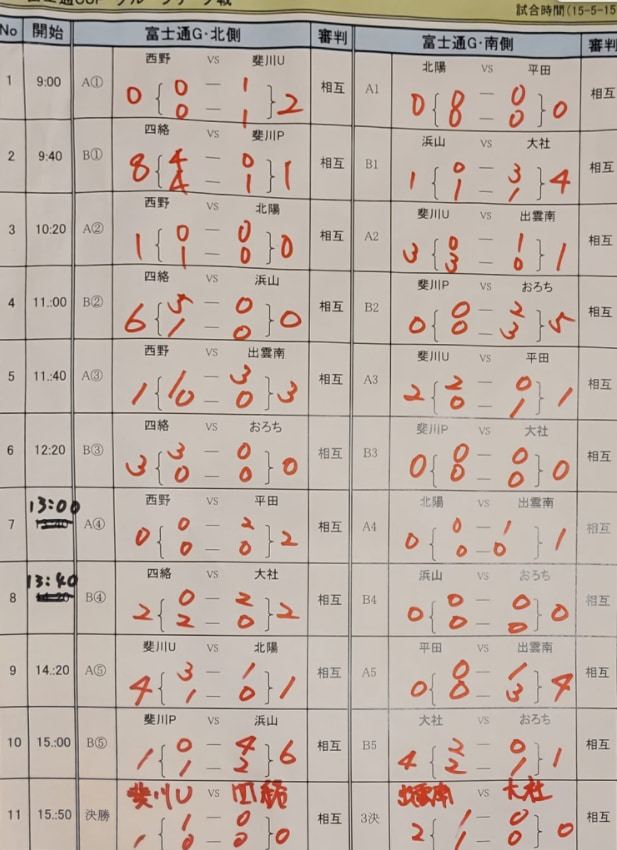 試合時間(15-5-15
No 開始 富士通G・北側 審判 富士通G・南側 審判
西野 VS 斐川U 北陽 VS 平田
1 9:00 A① 0 { 0 — 1 } 2 相互 A1 0 { 0 — 0 } 0 相互
0 — 1 0 — 0
四絡 VS 斐川P 浜山 VS 大社
2 9:40 B① 8 { 4 — 0 } 1 相互 B1 1 { 0 — 3 } 4 相互
4 — 1 1 — 1
西野 VS 北陽 斐川U VS 出雲南
3 10:20 A② 1 { 0 — 0 } 0 相互 A2 3 { 0 — 1 } 1 相互
1 — 0 3 — 0
四絡 VS 浜山 斐川P VS おろち
4 11.:00 B② 6 { 5 — 0 } 0 相互 B2 0 { 0 — 2 } 5 相互
1 — 0 0 — 3
西野 VS 出雲南 斐川U VS 平田
5 11.:40 A③ 1 { 1 — 3 } 3 相互 A3 2 { 2 — 0 } 1 相互
0 — 0 0 — 1
四絡 VS おろち 斐川P VS 大社
6 12:20 B③ 3 { 3 — 0 } 0 相互 B3 0 { 0 — 0 } 0 相互
0 — 0 0 — 0
13:00 西野 VS 平田 北陽 VS 出雲南
7 A④ 0 { 0 — 2 } 2 相互 A4 0 { 0 — 1 } 1 相互
0 — 0 0 — 0
13:40 四絡 VS 大社 浜山 VS おろち
8 14:20 B④ 2 { 0 — 2 } 2 相互 B4 0 { 0 — 0 } 0 相互
2 — 0 0 — 0
斐川U VS 北陽 平田 VS 出雲南
9 14.:20 A⑤ 4 { 3 — 1 } 1 相互 A5 0 { 0 — 1 } 4 相互
1 — 0 0 — 3
斐川P VS 浜山 大社 VS おろち
10 15.:00 B⑤ 1 { 0 — 4 } 6 相互 B5 4 { 2 — 0 } 1 相互
1 — 2 2 — 1
斐川U VS 四絡 出雲南 VS 大社
11 15.:50 決勝 1 { 1 — 0 } 0 相互 3決 2 { 1 — 0 } 0 相互
0 — 0 1 — 0